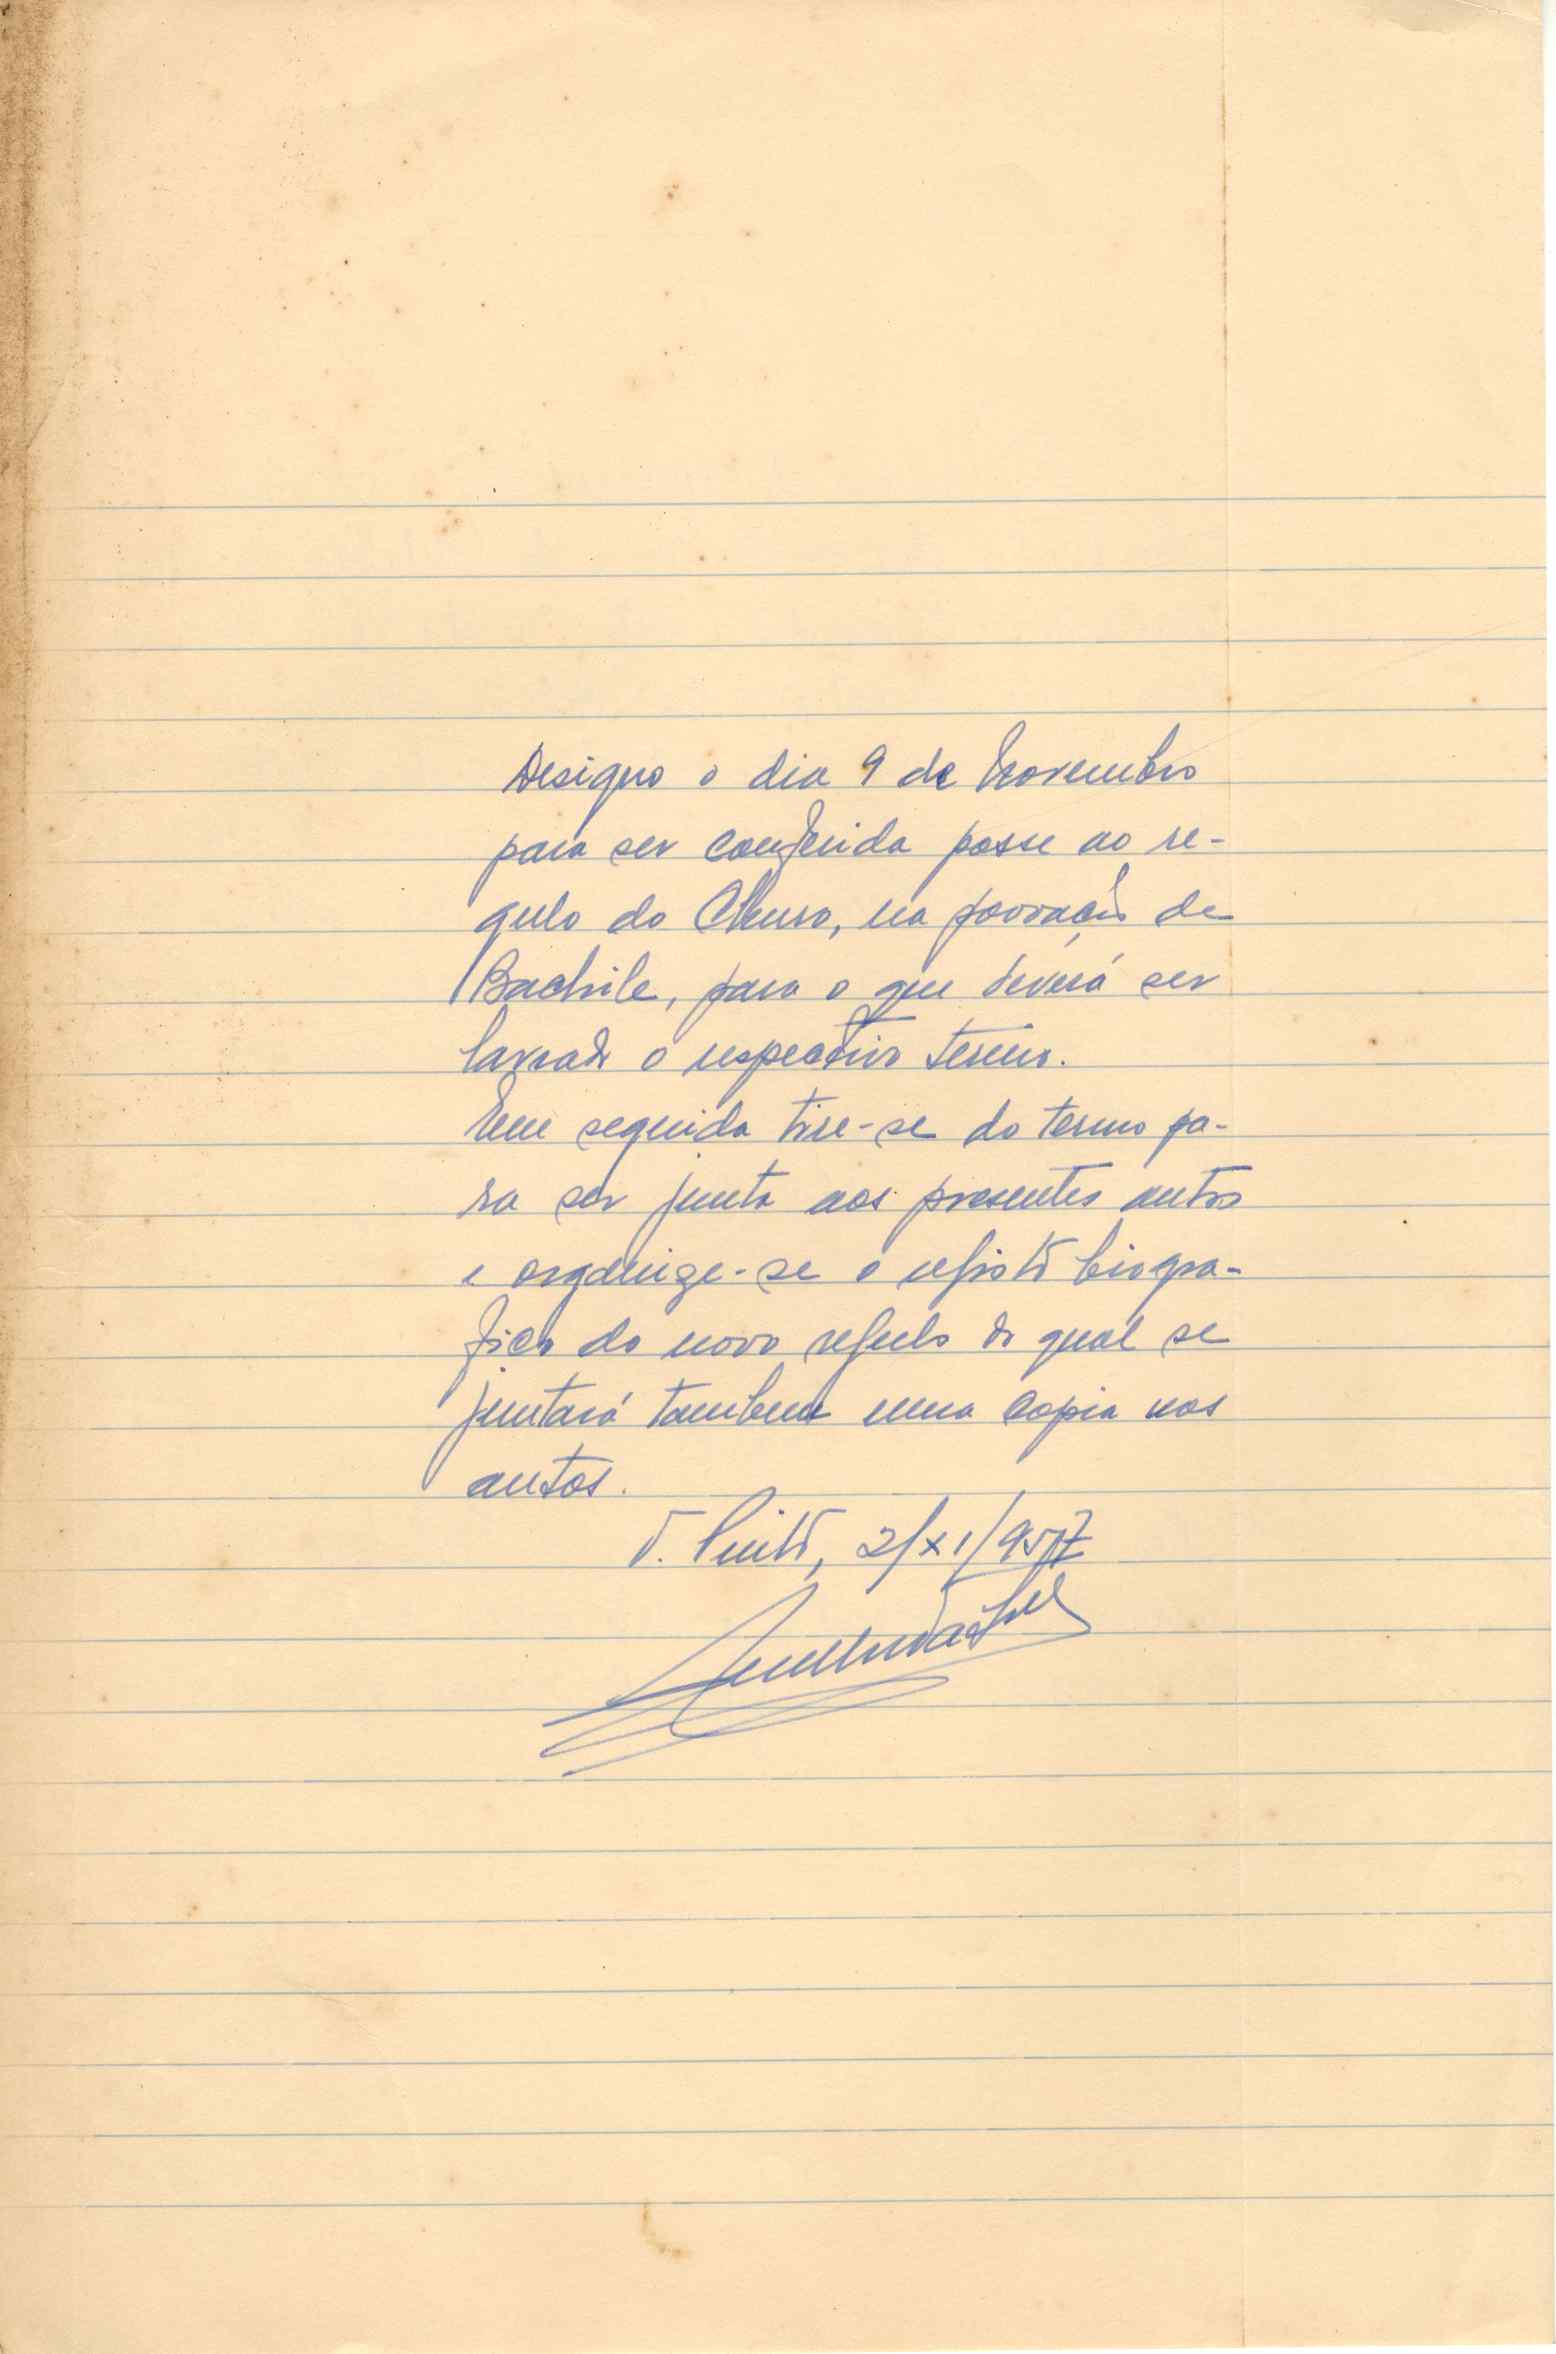 Designo o dia 9 de Novembro
para ser conferida posse ao re-
gulo do Churo, na povoação de
Bachile, para o que deverá ser
lavrado o respectivo termo.
Em seguida tire-se do termo pa-
ra ser junta aos presentes autos
e organize-se o registo biogra-
fico do novo regulo do qual se
juntará tambem uma copia nos
autos.
T. Pinto, 2/XI/957